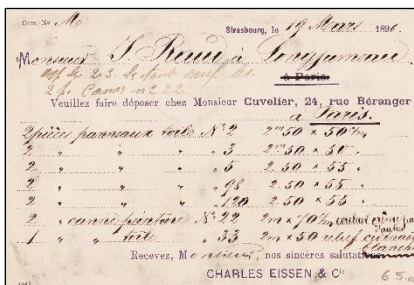 Com. No Mo
Strasbourg, le 19 Mars 1896
Monsieur J. Raux à Longjumeau
à Paris.
2 f. Canne n° 22
Veuillez faire déposer chez Monsieur Cuvelier, 24, rue Béranger
à Paris.
2 pièces panneaux toile N° 2 2m50 × 50 c/m
2 " " " 3 2m50 × 50 "
2 " " " 5 2.50 × 55 "
2 " " " 98 2.50 × 55 "
2 " " " 120 2.50 × 55 "
2 " canne peinture N° 22 2m × 70 c/m couleur crème
1 " " toile " 33 2m × 50 relief
blanche
Recevez, Monsieur, nos sincères salutations
CHARLES EISSEN & Cie